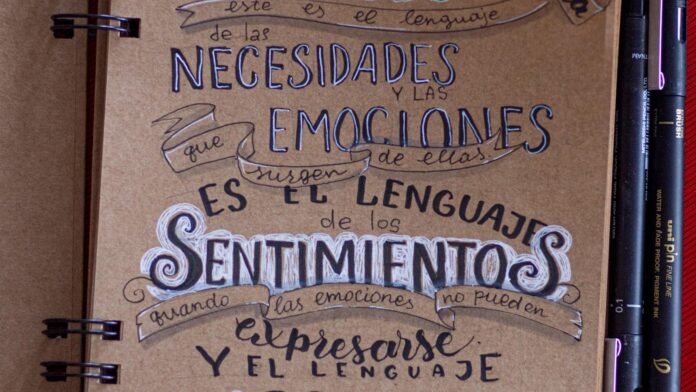 este es el lenguaje
de las
NECESIDADES
Y LAS
EMOCIONES
que surgen de ellas.
ES EL LENGUAJE
de los
SENTIMIENTOS
quando las emociones no pueden
expresarse.
Y EL LENGUAJE
BRUSH
uni pin
FINE LINE
WATER AND FADE PROOF, PIGMENT INK
0.1